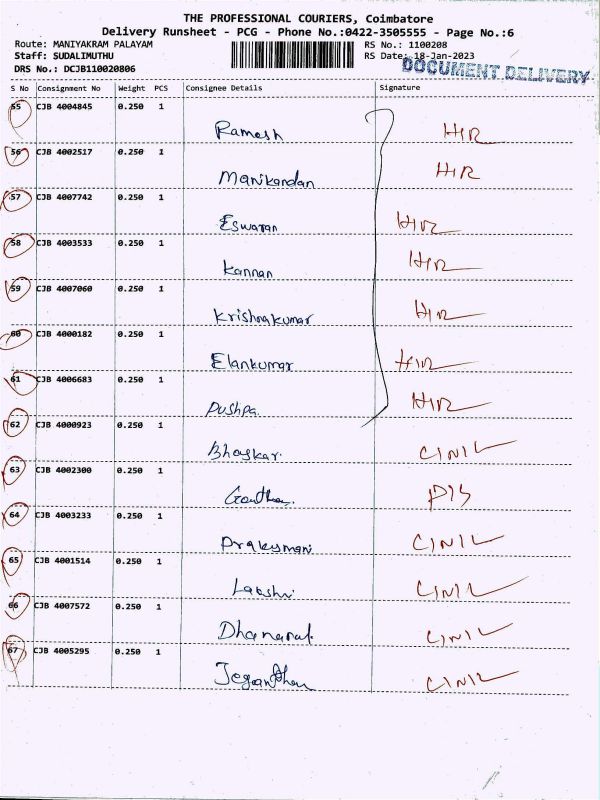 THE PROFESSIONAL COURIERS, Coimbatore
Delivery Runsheet - PCG - Phone No.:0422-3505555 - Page No.:6
Route: MANIYAKRAM PALAYAM RS No.: 1100208
Staff: SUDALIMUTHU RS Date: 18-Jan-2023
DRS No.: DCJB110020806 DOCUMENT DELIVERY
S No Consignment No Weight PCS Consignee Details Signature
55 CJB 4004845 0.250 1
Ramesh HIR
56 CJB 4002517 0.250 1
Manikandan HIR
57 CJB 4007742 0.250 1
Eswaran HIR
58 CJB 4003533 0.250 1
Kannan HIR
59 CJB 4007060 0.250 1
Krishnakumar HIR
60 CJB 4000182 0.250 1
Elankumar HIR
61 CJB 4006683 0.250 1
Pushpa HIR
62 CJB 4000923 0.250 1
Bhaskar. CINIL
63 CJB 4002300 0.250 1
64 CJB 4003233 0.250 1
CINIL
65 CJB 4001514 0.250 1
CINIL
66 CJB 4007572 0.250 1
CINIL
67 CJB 4005295 0.250 1
CINIL